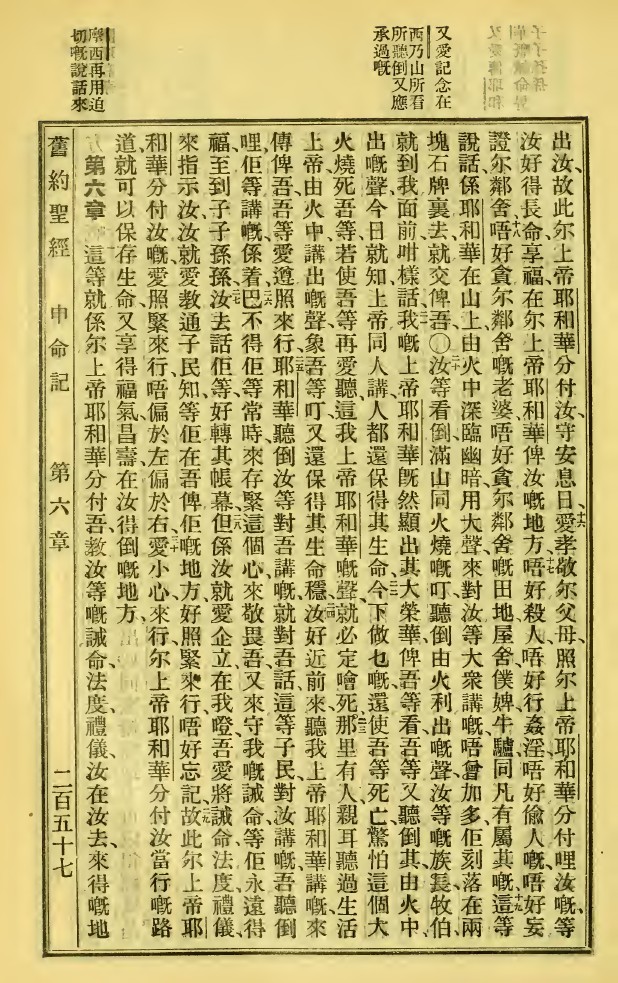 又愛記念在
西乃山所看
所聽倒又應
承過嘅
摩西再用迫
切嘅說話來
出汝、故此尔上帝耶和華分付汝、守安息日、十六愛孝敬尔父母、照尔上帝耶和華分付哩汝嘅、等
汝好得長命享福、在尔上帝耶和華俾汝嘅地方、十七唔好殺人、十八唔好行姦淫、唔好偷人嘅、唔好妄
證尔鄰舍、唔好貪尔鄰舍嘅老婆、唔好貪尔鄰舍嘅田地屋舍僕婢牛驢、同凡有屬其嘅、十九這等
說話係耶和華在山上由火中深臨幽暗用大聲來對汝等大衆講嘅、唔曾加多、佢刻落在兩
塊石牌裏去、就交俾吾、〇二十汝等看倒滿山同火燒嘅叮、聽倒由火利出嘅聲、汝等嘅族長牧伯、
就到我面前、咁樣話、我嘅上帝耶和華旣然顯出其大榮華、俾吾等看、吾等又聽倒其由火中、
出嘅聲、今日就知上帝同人講、人都還保得其生命、今下做乜嘅還使吾等死亡驚怕這個大
火燒死吾等、若使吾等再愛聽這我上帝耶和華嘅聲、就必定噲死、那里有人親耳聽過生活
上帝由火中講出嘅聲、象吾等叮、又還保得其生命、穩汝好近前來聽我上帝耶和華講嘅、來
傳俾吾、吾等愛遵照來行、耶和華聽倒汝等對吾講嘅、就對吾話、這等子民對汝講嘅、吾聽倒
哩、佢等講嘅係着、巴不得佢等常時來存緊這個心、來敬畏吾、又來守我嘅誡命、等佢永遠得
福、至到子子孫孫、汝去話佢等、好轉其帳幕、但係汝就愛企立在我噔、吾愛將誡命法度禮儀、
來指示汝、汝就愛教通子民知、等佢在吾俾佢嘅地方、好照緊來行、唔好忘記、故此尔上帝耶
和華分付汝嘅、愛照緊來行、唔偏於左、偏於右、三十愛小心來行尔上帝耶和華分付汝當行嘅路
道、就可以保存生命、又享得福氣昌壽、在汝得倒嘅地方、
第六章 這等就係尔上帝耶和華分付吾教汝等嘅誡命法度禮儀、汝在汝去來得嘅地
舊約聖經 申命記 第六章 二百五十七